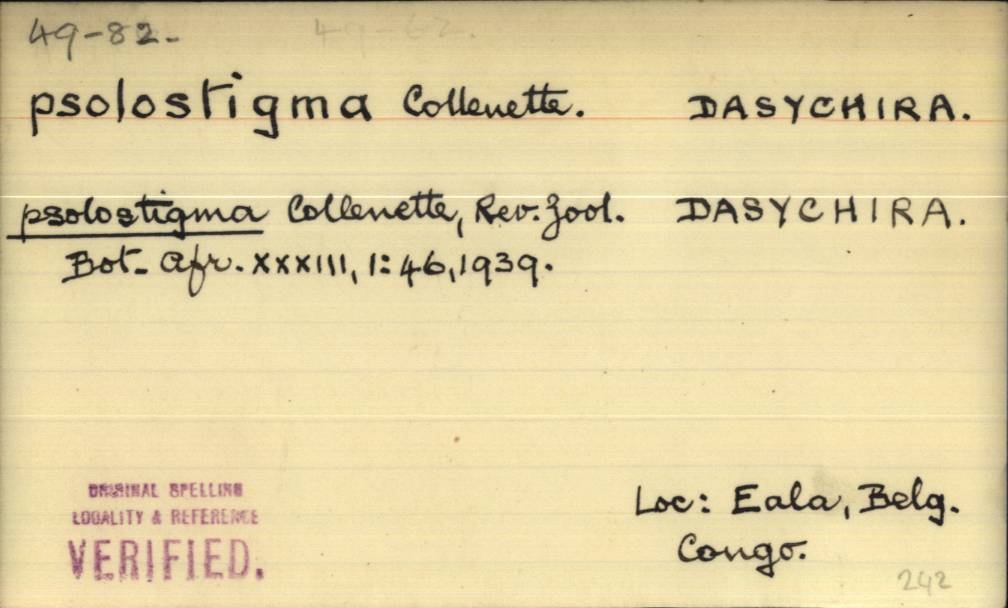 49-82-
psolostigma Collenette. DASYCHIRA.
psolostigma Collenette, Rev. Zool. DASYCHIRA.
Bot. Afr. XXXIII, 1: 46, 1939.
ORIGINAL SPELLING
LOCALITY & REFERENCE
VERIFIED.
Loc: Eala, Belg.
Congo.
242